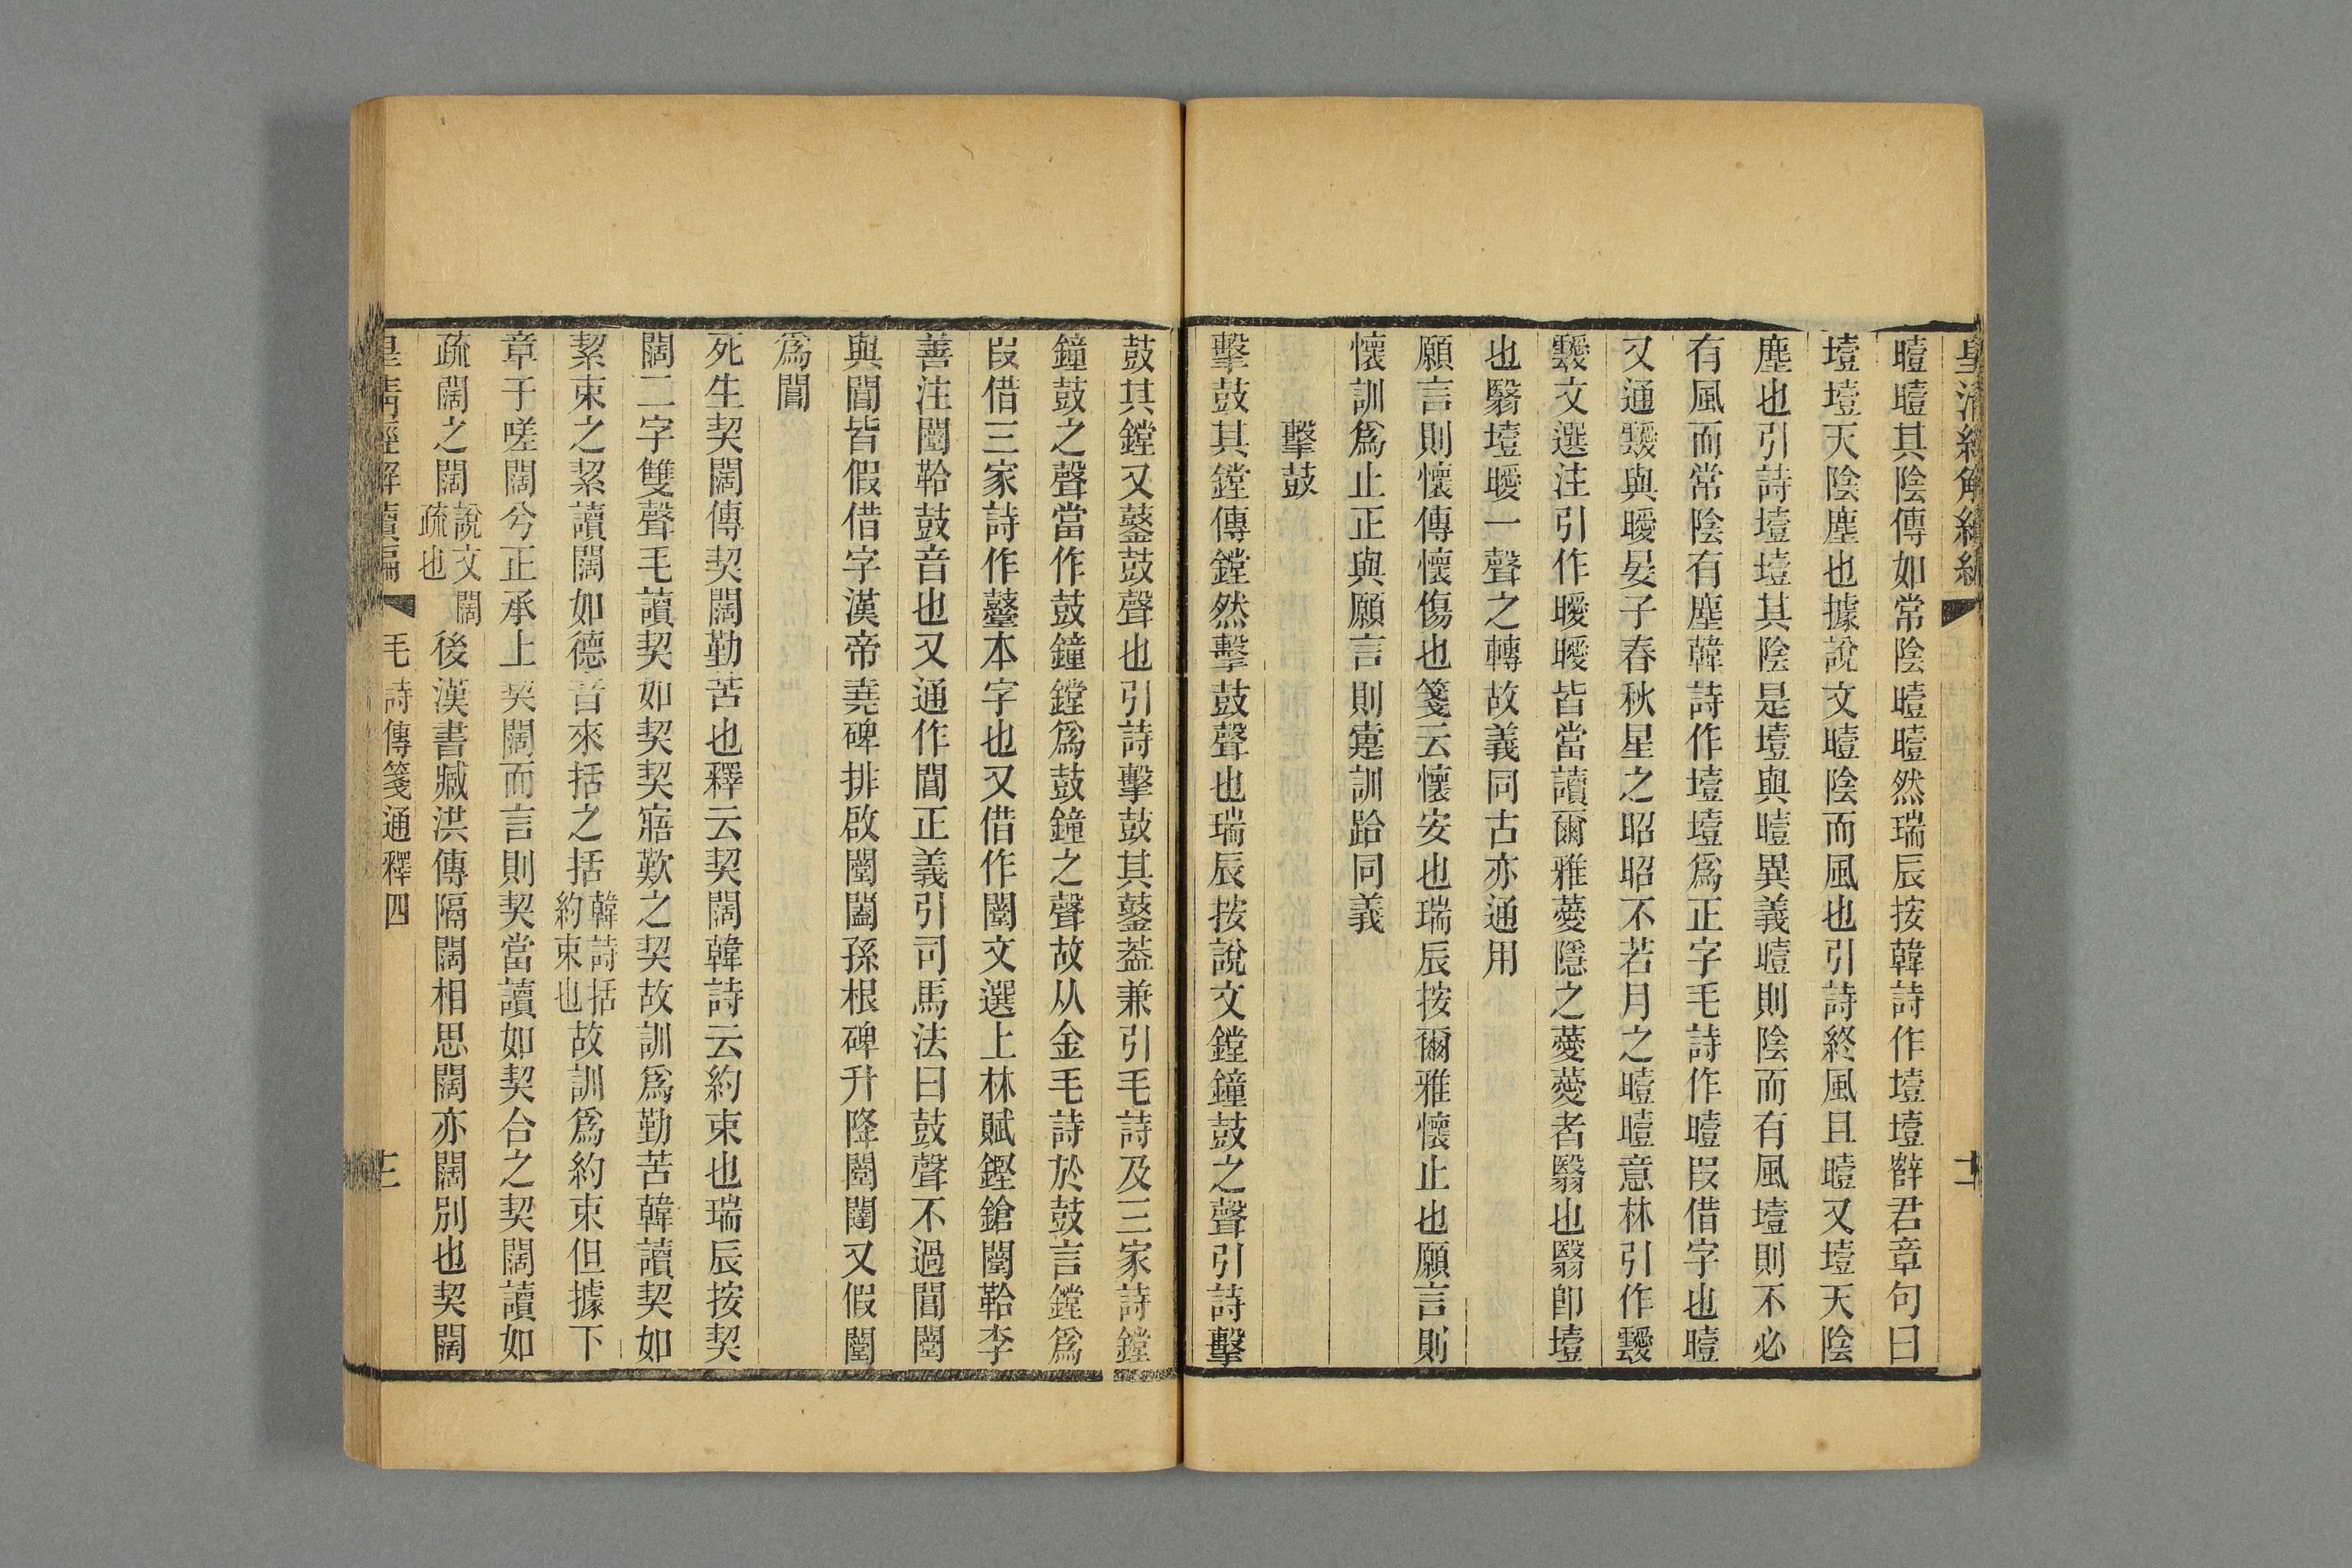 曀曀其陰傳如常陰曀曀然瑞辰按韓詩作壇壇薛君章句曰
壇壇天陰塵也據說文曀陰而風也引詩終風且曀又壇天陰
塵也引詩壇壇其陰是壇與曀異義曀則陰而有風壇則不必
有風而常陰有塵韓詩作壇壇爲正字毛詩作曀叚借字也曀
又通靉與曖晏子春秋星之昭昭不若月之曀曀意林引作靉
靉文選注引作曖曖皆當讀爾雅薆隱之薆薆者翳也翳卽壇
也翳壇曖一聲之轉故義同古亦通用
願言則懷傳懷傷也箋云懷安也瑞辰按爾雅懷止也願言則
懷訓爲止正與願言則疐訓跲同義
擊鼓
擊鼓其鏜傳鏜然擊鼓聲也瑞辰按說文鏜鐘鼓之聲引詩擊
鼓其鏜又鼞鼓聲也引詩擊鼓其鼞葢兼引毛詩及三家詩鏜
鐘鼓之聲當作鼓鐘鏜爲鼓鐘之聲故从金毛詩於鼓言鏜爲
叚借三家詩作鼞本字也又借作闛文選上林賦鏗鎗闛鞈李
善注闛鞈鼓音也又通作閶正義引司馬法曰鼓聲不過閶闛
與閶皆假借字漢帝堯碑排啟闛闔孫根碑升降闛闥又假闛
爲閶
死生契闊傳契闊勤苦也釋云契闊韓詩云約束也瑞辰按契
闊二字雙聲毛讀契如契契寤歎之契故訓爲勤苦韓讀契如
絜束之絜讀闊如德音來括之括韓詩括約束也故訓爲約束但據下
章于嗟闊兮正承上契闊而言則契當讀如契合之契闊讀如
疏闊之闊說文闊疏也後漢書臧洪傳隔闊相思闊亦闊別也契闊
毛詩傳箋通釋四